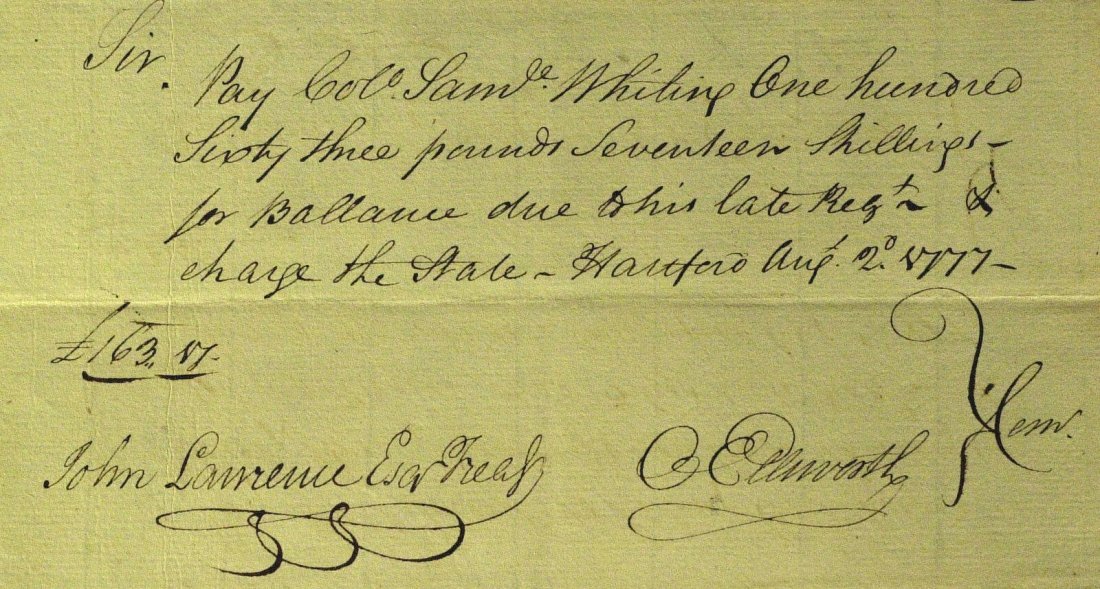 Sir.
Pay Colo. Samle. Whiting One hundred
Sixty three pounds Seventeen Shillings –
for Ballance due to his late Regt. &
charge the State – Hartford Augt. 2d. 1777 –
£163 .. 17 –
John Lawrence Esqr Treasr
O Ellsworth } Com.